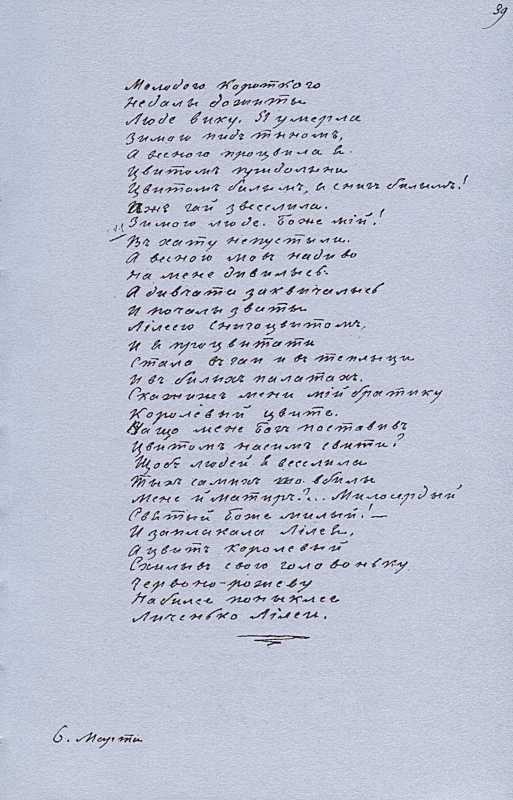 39
Молодого короткого
Недалы дожиты
Люде вику. Я умерла
Зимою пидъ тыномъ,
А весною процвила я
Цвитомъ при долыни
Цвитомъ билымъ, якъ снигъ билымъ!
Ажъ гай звеселила.
Зимою люде. Боже мій!
Въ хату непустили.
А весною мовъ на диво
На мене дивилысь.
А дивчата заквичалысь
И почалы зваты
Лілеєю снигоцвитомъ,
И я процвитати
Стала въ гаи и въ теплыци
И въ билыхъ палатахъ.
Скажижъ мени мій братику
Королевый цвите.
На що мене Богъ поставивъ
Цвитомъ на симъ свити?
Щобъ людей я веселила
Тыхъ самыхъ що вбилы
Мене й матиръ?.. Милосердый
Святый Боже милый! —
И заплакала Лілея,
А цвитъ королевый
Схиливъ свою головоньку
Червоно-рожеву
На билее поныклее
Личенько Лілеи.
6. Марта